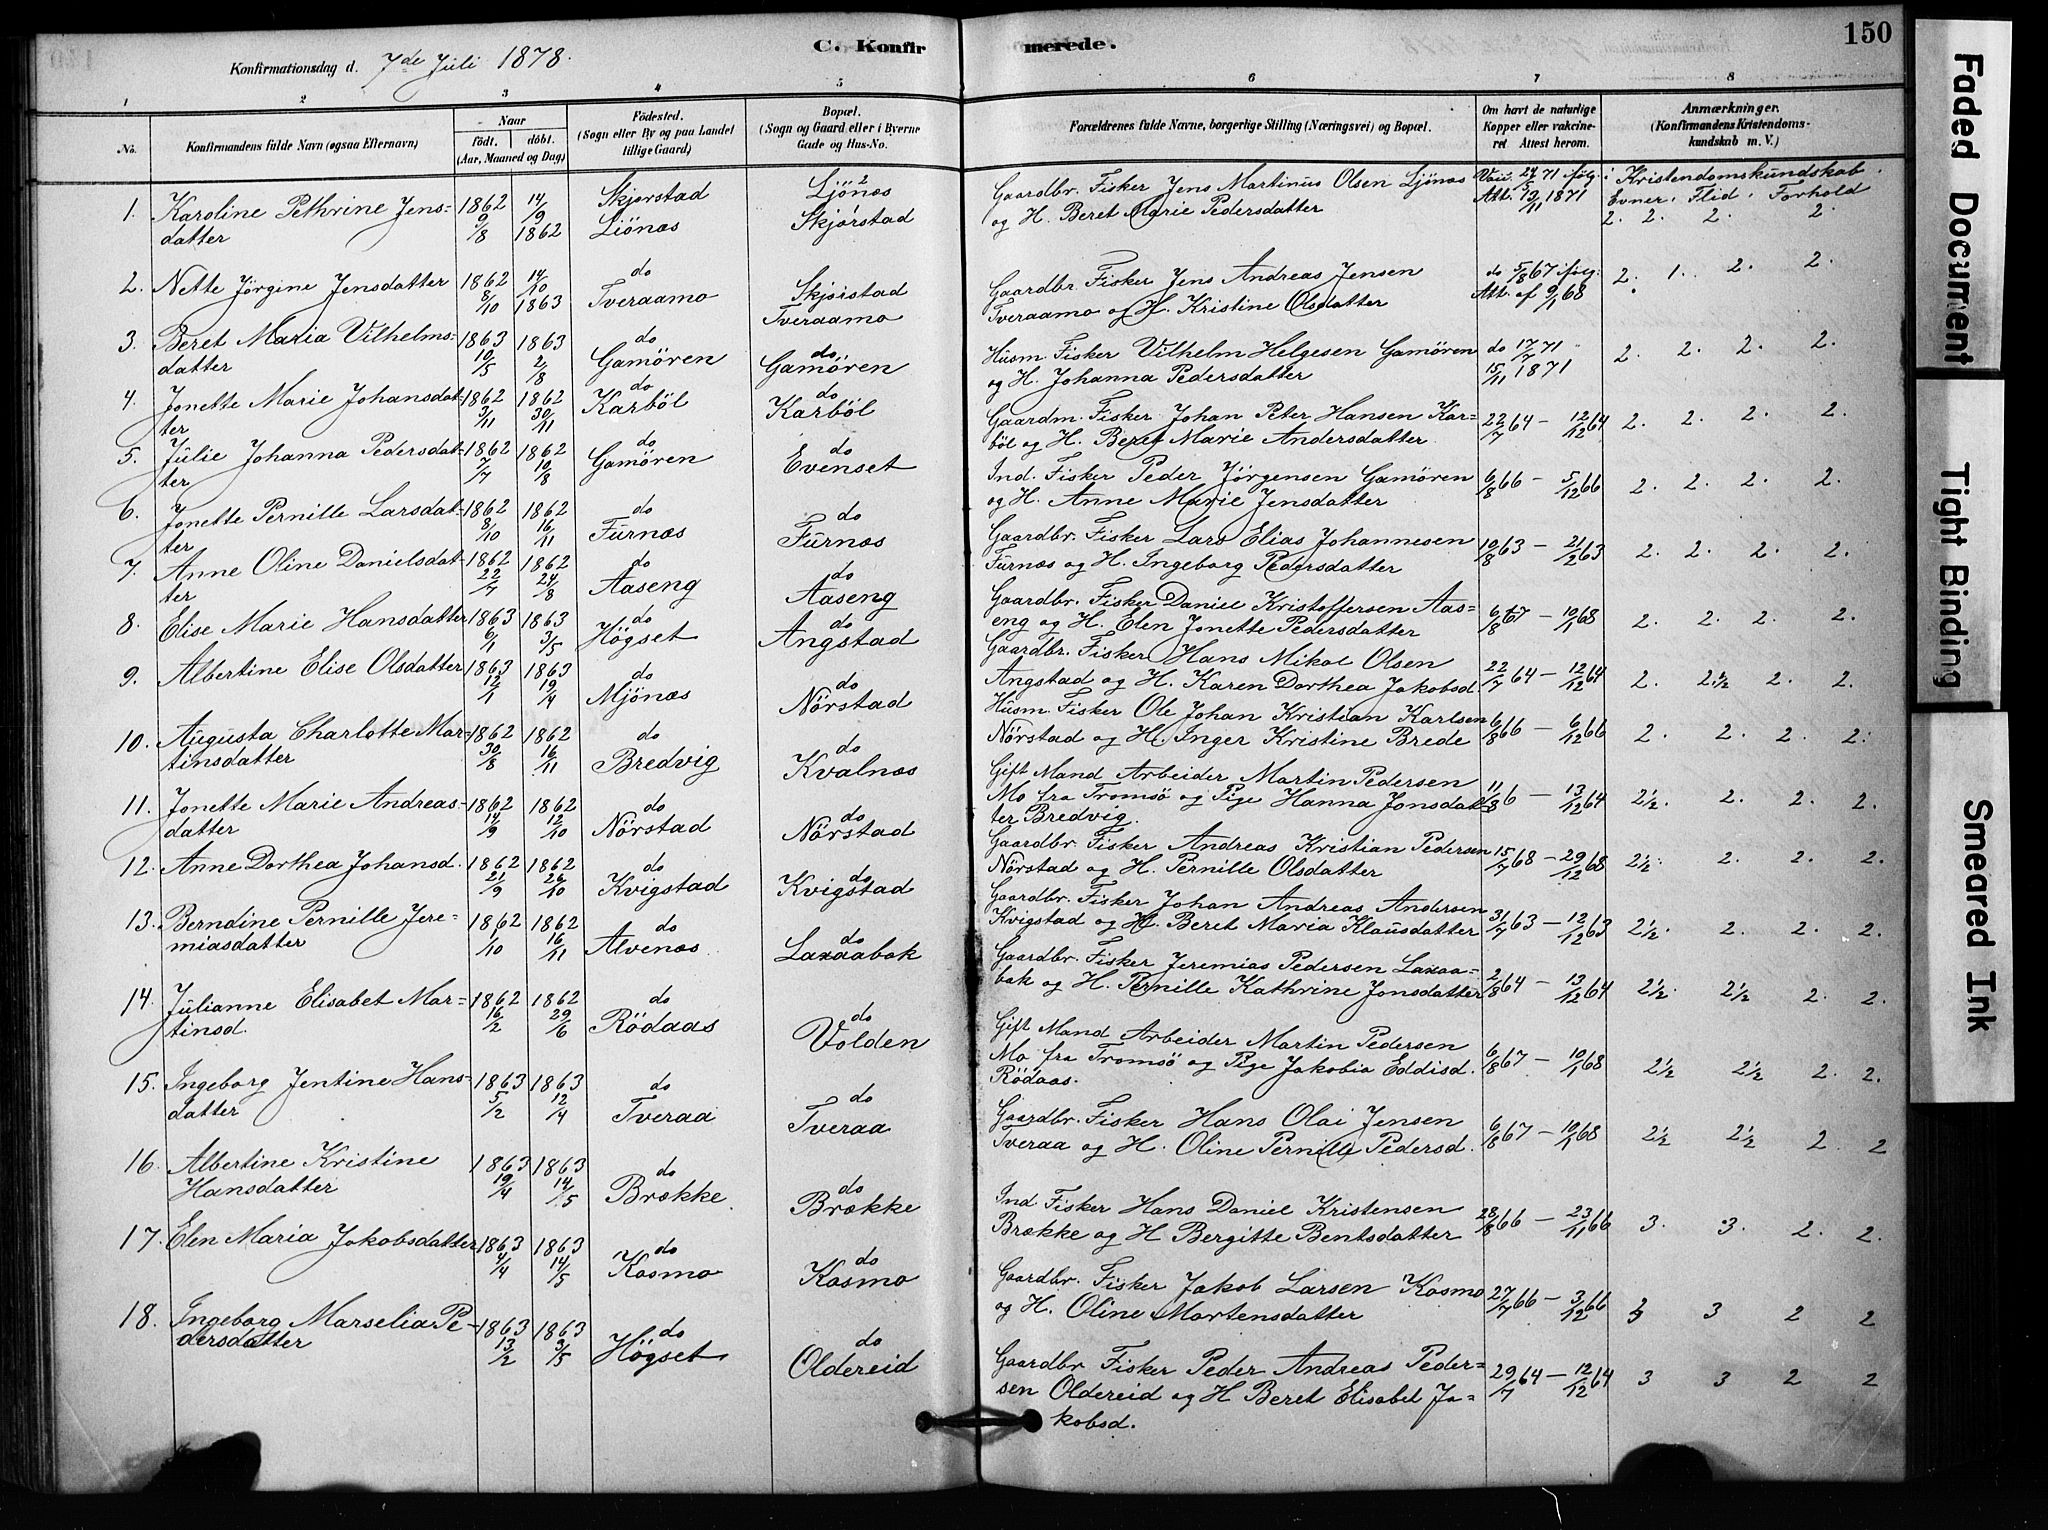 150
C. Konfirmerede.
Konfirmationsdag d. 7de Juli 1878.
1 2 3 4 5 6 7 8
No. Konfirmandens fulde Navn (ogsaa Efternavn) Naar födt. döbt. (Aar, Maaned og Dag) Födested. (Sogn eller By og paa Landet tillige Gaard) Bopæl. (Sogn og Gaard eller i Byerne Gade og Hus-No. Forældrenes fulde Navne, borgerlige Stilling (Næringsvei) og Bopæl. Om havt de naturlige Kopper eller vakcineret Attest herom. Anmærkninger. (Konfirmandens Kristendomskundskab m. V.)
1. Karoline Pethrine Jens- 1862 14/9 Skjerstad Ljönæs Gaardbr. Fisker Jens Martinus Olsen Ljönæs Kristendomskundskab
datter 9/8 1862 Liönæs Skjerstad og H. Beret Marie Pedersdatter Att. 13/11 1871 Evner. Flid. Forhold
2. 2. 2. 2.
2. Nette Jörgine Jensdatter 1862 14/10 do Skjerstad Gaardbr Fisker Jens Andreas Jensen do 5/8 67 2. 1. 2. 2.
8/10 1863 Tveraamo Tveraamo Tveraamo og H. Kristine Olsdatter Att. af 9/1 68
3. Beret Maria Vilhelms- 1863 1863 do do Husm. Fisker Vilhelm Helgesen Gamören do 17/7 71 2. 2. 2. 2.
datter 10/5 2/8 Gamören Gamören og H. Johanna Pedersdatter 15/11 1871
4. Jonette Marie Johansdat- 1862 1862 do do Gaardm. Fisker Johan Peter Hansen Kar- 22/7 64 – 12/12 64 2. 2. 2. 2.
ter 3/11 30/11 Karböl Karböl böl og H. Beret Marie Andersdatter
5. Julie Johanna Pedersdat- 1862 1862 do do Ind. Fisker Peder Jörgensen Gamören 6/8 66 – 5/12 66 2. 2. 2. 2.
ter 7/7 10/8 Gamören Evenset og H. Anne Marie Jensdatter
6. Jonette Pernille Larsdat- 1862 1862 do do Gaardbr. Fisker Lars Elias Johannesen 10/8 63 – 21/2 63 2. 2. 2. 2.
ter 8/10 16/11 Furnæs Furnæs Furnæs og H. Ingeborg Pedersdatter
7. Anne Oline Danielsdat- 1862 1862 do do Gaardbr. Fisker Daniel Kristoffersen Aas- 6/8 67 – 10/1 68 2. 2. 2. 2.
ter 22/7 24/8 Aaseng Aaseng eng og H. Elen Jonette Pedersdatter
8. Elise Marie Hansdatter 1863 1863 do do Gaardbr. Fisker Hans Mikal Olsen 22/7 64 – 12/12 64 2. 2½ 2. 2.
6/1 3/5 Högset Angstad Angstad og H. Karen Dorthea Jakobsd.
9. Albertine Elise Olsdatter 1863 1863 do do Husm. Fisker Ole Johan Kristian Karlsen 6/8 66 – 6/12 66 2. 2. 2. 2.
12/1 19/4 Mjönæs Nörstad Nörstad og H. Inger Kristine Brede
10. Augusta Charlotte Mar- 1862 1862 do do Gift Mand Arbeider Martin Pedersen 13/12 64 2½. 2. 2. 2.
tinsdatter 30/8 16/11 Bredvig Kvalnæs Mo fra Tromsö og Pige Hanna Jonsdat-
ter Bredvig.
11. Jonette Marie Andreas- 1862 1862 do do Gaardbr. Fisker Andreas Kristian Pedersen 15/7 68 – 29/12 68 2½. 2. 2. 2.
datter 14/9 12/10 Nörstad Nörstad Nörstad og H. Pernille Olsdatter
12. Anne Dorthea Johansd. 1862 1862 do do Gaardbr. Fisker Johan Andreas Andersen 31/7 63 – 12/12 63 2½. 2. 2. 2.
21/9 26/10 Kvigstad Kvigstad Kvigstad og H. Beret Maria Klausdatter
13. Berndine Pernille Jere- 1862 1862 do do Gaardbr. Fisker Jeremias Pedersen Laxaa- 2/8 64 – 13/12 64 2½. 2½ 2. 2.
miasdatter 1/10 16/11 Alvenæs Laxaabak bak og H. Pernille Kathrine Jonsdatter
14. Julianne Elisabet Mar- 1862 1862 do do Gift Mand Arbeider Martin Pedersen 6/8 67 – 10/1 68 2½ 2½ 2. 2.
tinsd. 16/2 29/6 Rödaas Volden Mo fra Tromsö og Pige Jakobia Eddisd.
Rödaas.
15. Ingeborg Jentine Hans- 1863 1863 do do Gaardbr. Fisker Hans Olai Jensen 6/8 67 – 10/1 68 2½ 2½ 2. 2
datter 5/2 12/4 Tveraa Tveraa Tveraa og H. Oline Pernille Pedersd.
16. Albertine Kristine 1863 1863 do do Ind. Fisker Hans Daniel Kristensen 28/8 66 – 23/11 66 3. 3. 2. 2.
Hansdatter 19/4 14/5 Brække Brække Brække og H Bergitte Bentsdatter
17. Elen Maria Jakobsdatter 1863 1863 do do Gaardbr. Fisker Jakob Larsen Kosmo 27/7 66 – 3/12 66 3 3 2 2
4/4 14/5 Kosmo Kosmo og H. Oline Mortensdatter
18. Ingeborg Marselia Pe- 1863 1863 do do Gaardbr Fisker Peder Andreas Peder- 29/7 64 – 12/12 64 3 3 2 2
dersdatter 13/2 3/5 Högset Oldereid sen Oldereid og H Beret Elisabet Ja-
kobsd.
Faded Document
Tight Binding
Smeared Ink